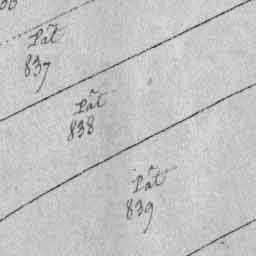 Pât
837
Pât
838
Pât
839